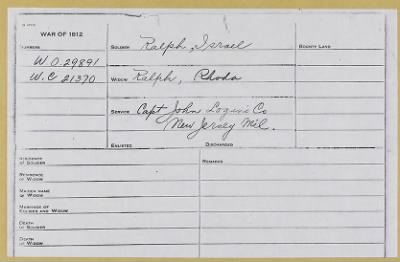 WAR OF 1812
NUMBERS
SOLDIER Ralph, Israel
BOUNTY LAND
W.O. 29891
W.C. 21370
WIDOW Ralph, Rhoda
SERVICE Capt John Logins Co
New Jersey Mil.
ENLISTED
DISCHARGED
RESIDENCE
OF SOLDIER
REMARKS
RESIDENCE
OF WIDOW
MAIDEN NAME
OF WIDOW
MARRIAGE OF
SOLDIER AND WIDOW
DEATH
OF SOLDIER
DEATH
OF WIDOW